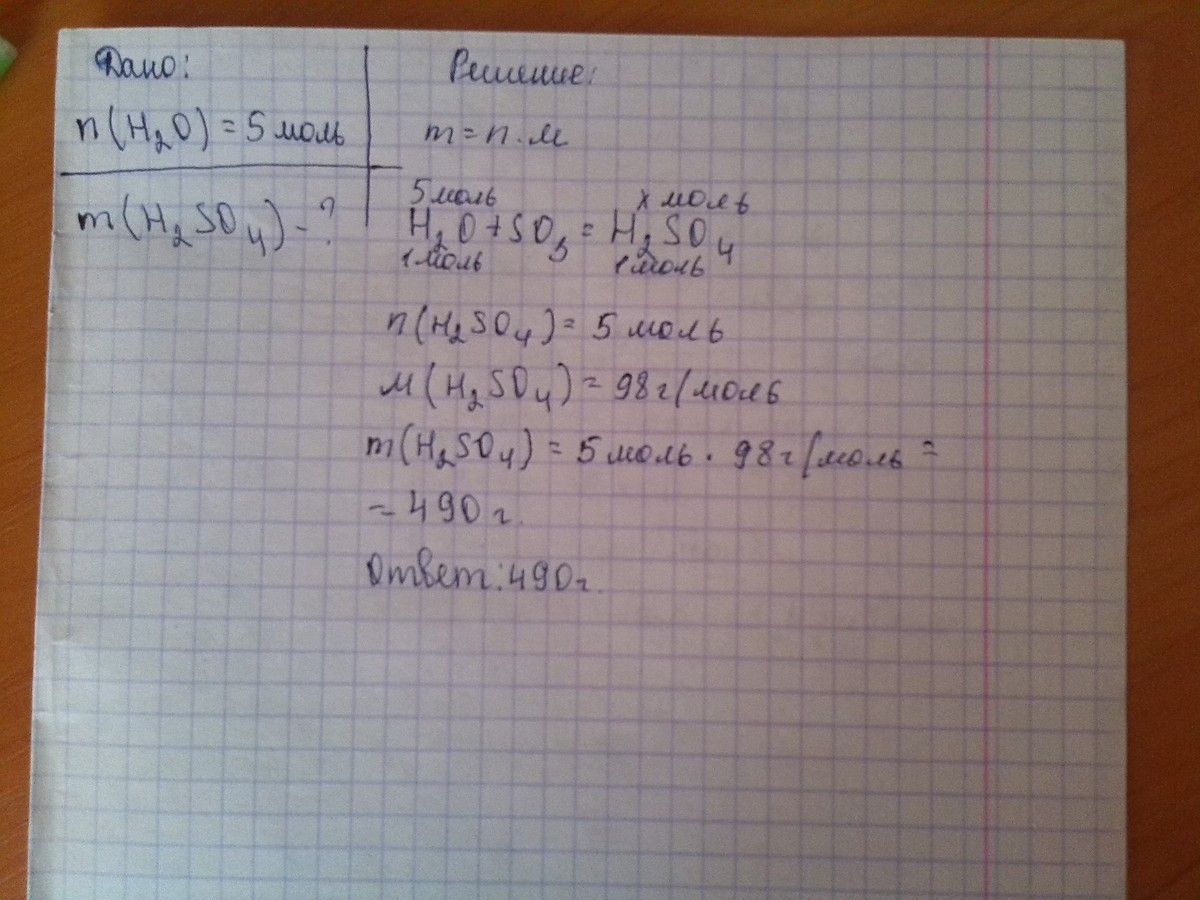 Дано:
n(H₂O) = 5 моль
m(H₂SO₄) - ?
Решение:
m = n · м
5 моль х моль
H₂O + SO₃ = H₂SO₄
1 моль 1 моль
n(H₂SO₄) = 5 моль
м(H₂SO₄) = 98 г/моль
m(H₂SO₄) = 5 моль · 98 г/моль =
= 490 г.
Ответ: 490 г.